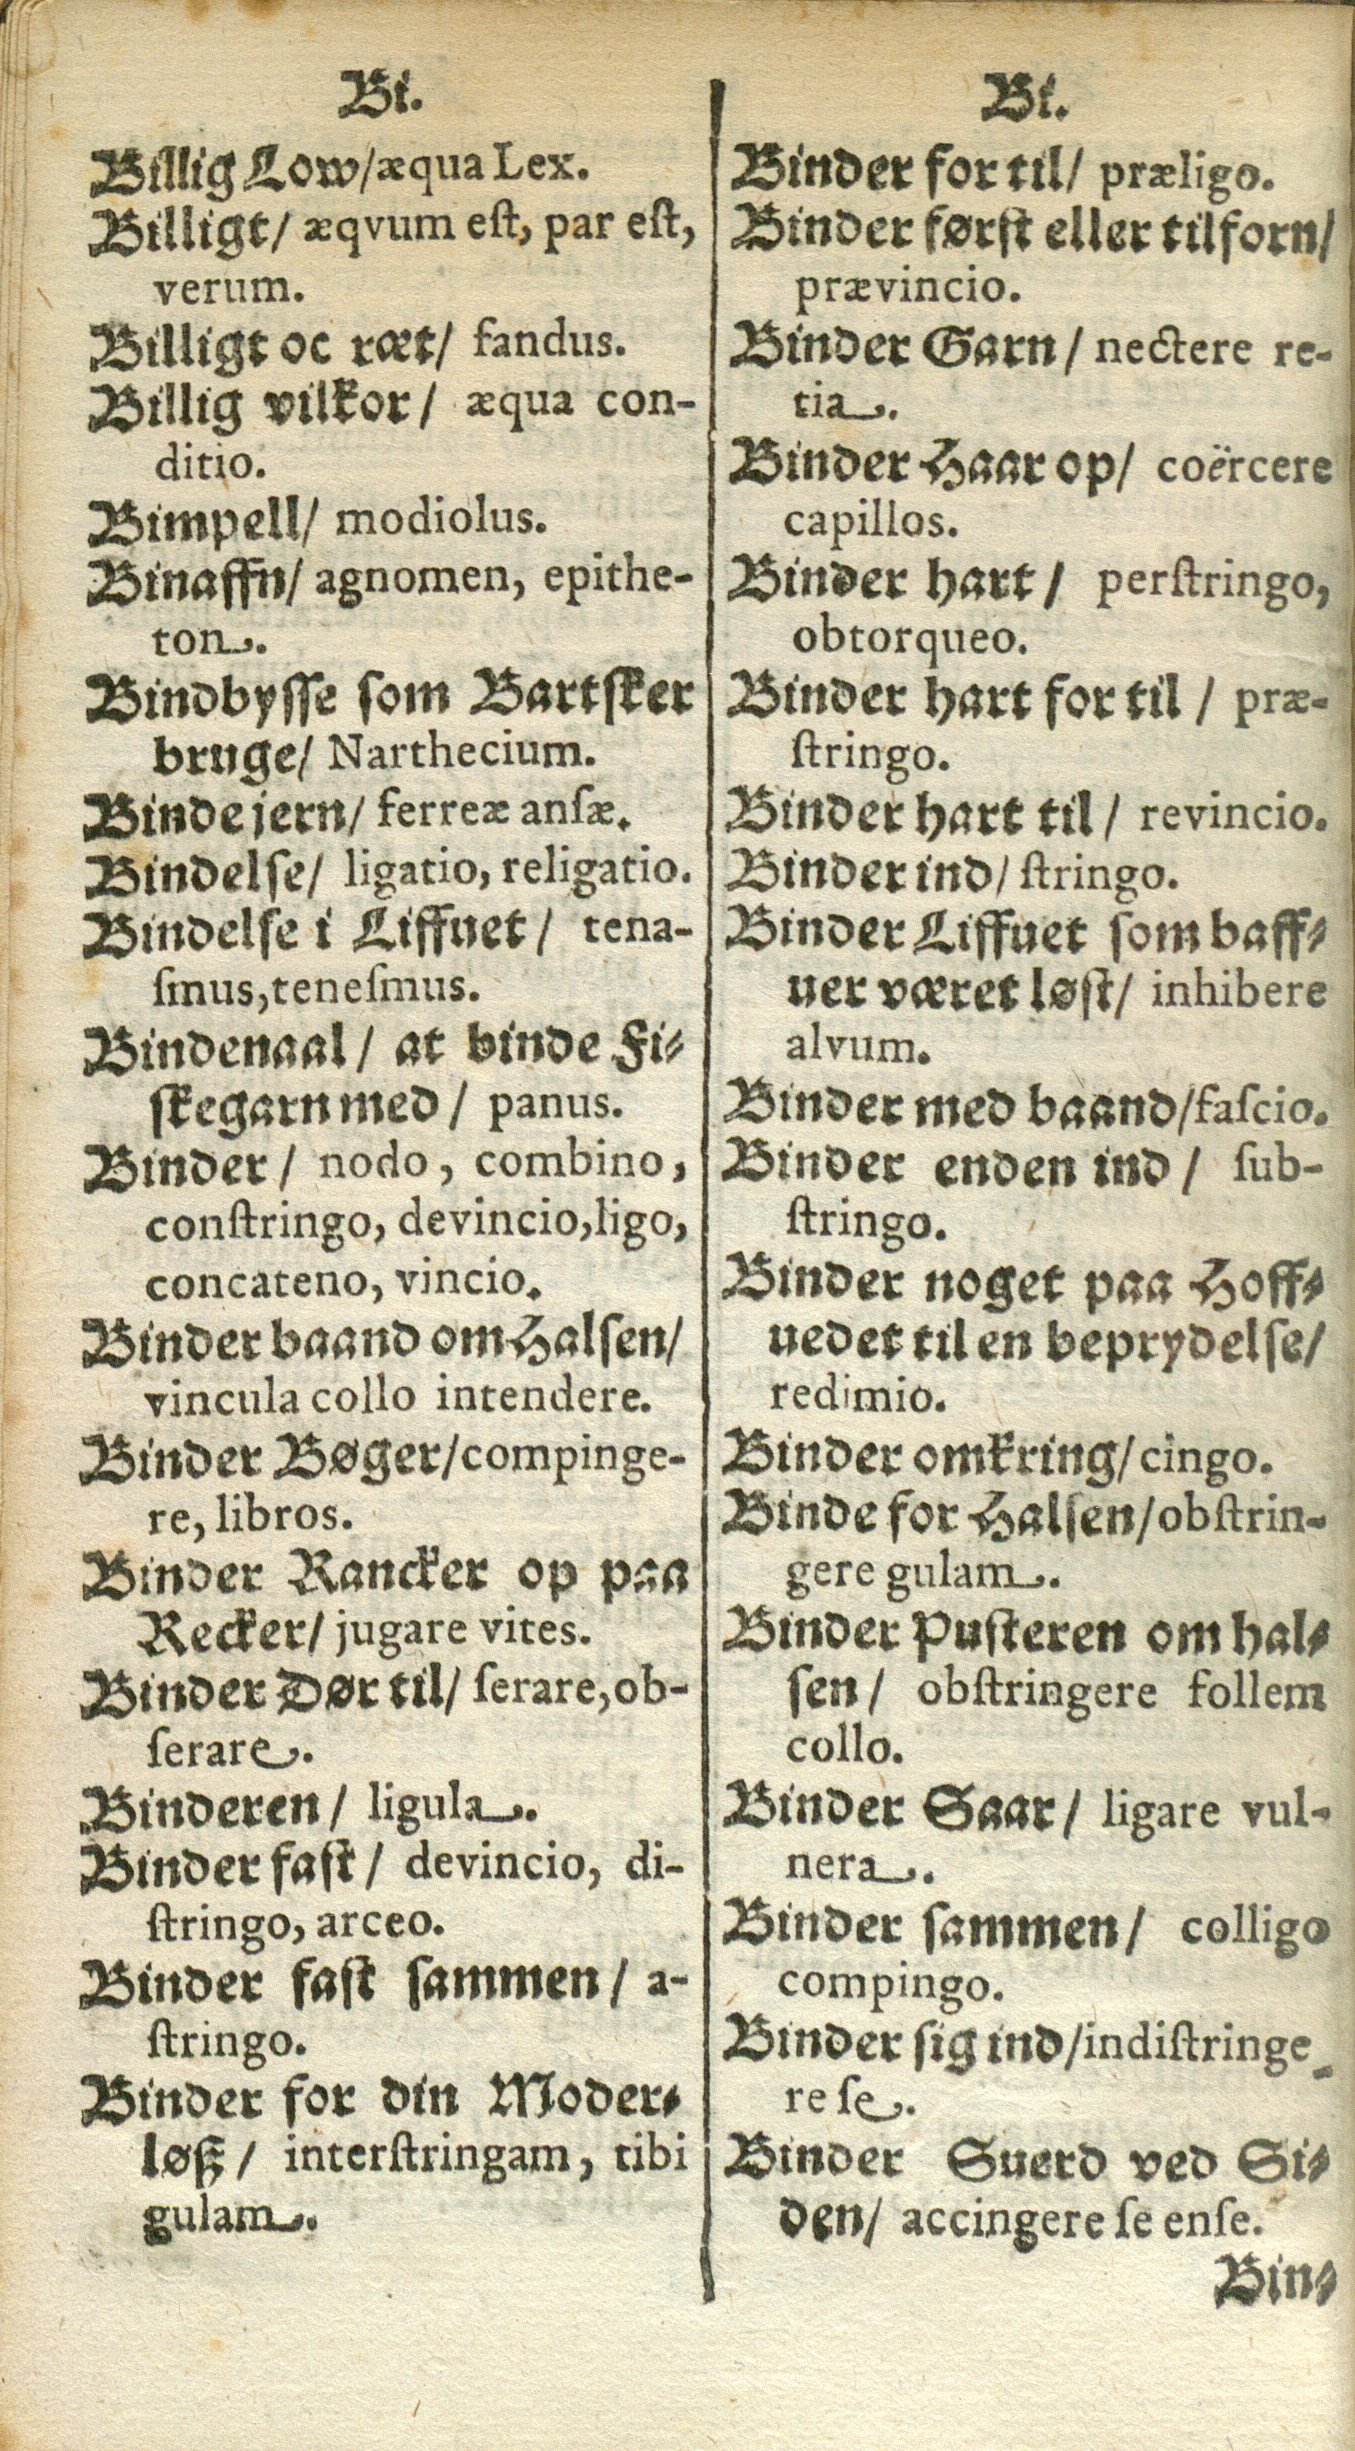 Bi.
Billig Low/æqua Lex.
Billigt/ æqvum eſt, par eſt,
verum.
Billigt oc ræt/ fandus.
Billig vilkor/ æqua con-
ditio.
Bimpell/ modiolus.
Binaffn/ agnomen, epithe-
ton.
Bindbyſſe ſom Bartſker
bruge/ Narthecium.
Binde jern/ ferreæ anſæ.
Bindelſe/ ligatio, religatio.
Bindelſe i Liffuet/ tena-
ſmus, teneſmus.
Bindenaal/ at binde Fi-
ſkegarn med/ panus.
Binder/ nodo, combino,
conſtringo, devincio, ligo,
concateno, vincio.
Binder baand om Halſen/
vincula collo intendere.
Binder Bøger/compinge-
re, libros.
Binder Rancker op paa
Recker/ jugare vites.
Binder Dør til/ ſerare, ob-
ſerare.
Binderen/ ligula.
Binder faſt/ devincio, di-
ſtringo, arceo.
Binder faſt ſammen/ a-
ſtringo.
Binder for din Moder-
løß/ interſtringam, tibi
gulam.
Bi.
Binder for til/ præligo.
Binder førſt eller tilforn/
prævincio.
Binder Garn/ nectere re-
tia.
Binder Haar op/ coërcere
capillos.
Binder hart/ perſtringo,
obtorqueo.
Binder hart for til/ præ-
ſtringo.
Binder hart til/ revincio.
Binder ind/ ſtringo.
Binder Liffuet ſom haff-
uer været løſt/ inhibere
alvum.
Binder med baand/faſcio.
Binder enden ind/ ſub-
ſtringo.
Binder noget paa Hoff-
uedet til en beprydelſe/
redimio.
Binder omkring/ cingo.
Binde for Halſen/obſtrin-
gere gulam.
Binder Puſteren om hal-
ſen/ obſtringere follem
collo.
Binder Saar/ ligare vul-
nera.
Binder ſammen/ colligo
compingo.
Binder ſig ind/indiſtringe-
re ſe.
Binder Suerd ved Si-
den/ accingere ſe enſe.
Bin-